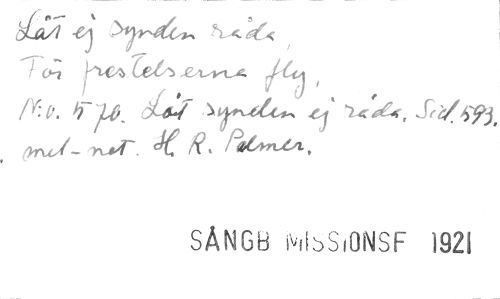 Låt ej synden råda,
För frestelserna fly,
N:o. 570. Låt synden ej råda. Sid. 593.
mel-not. H. R. Palmer.
SÅNGB MISSIONSF 1921